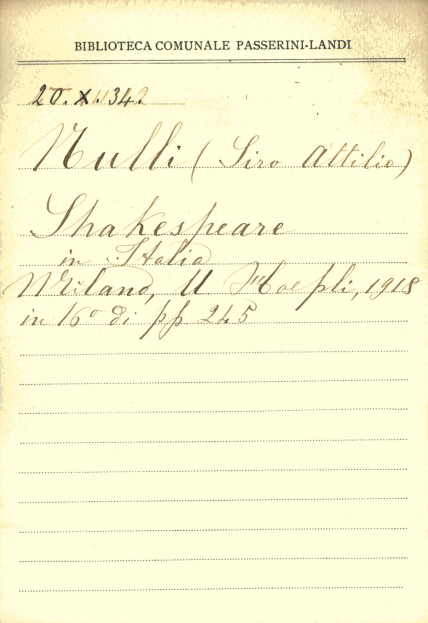 BIBLIOTECA COMUNALE PASSERINI-LANDI
20. X. 34
Nulli (Siro Attilio)
Shakespeare
in Italia
Milano, U Hoepli, 1918
in 16° di pp 245